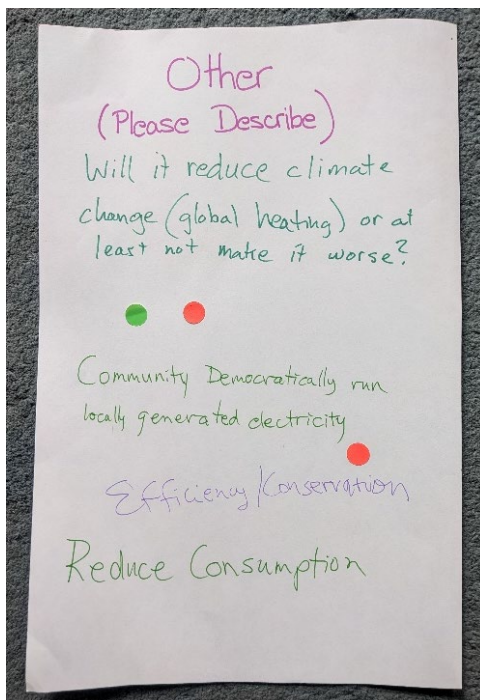 Other
(Please Describe)
Will it reduce climate
change (global heating) or at
least not make it worse?
Community Democratically run
locally generated electricity
Efficiency/Conservation
Reduce Consumption